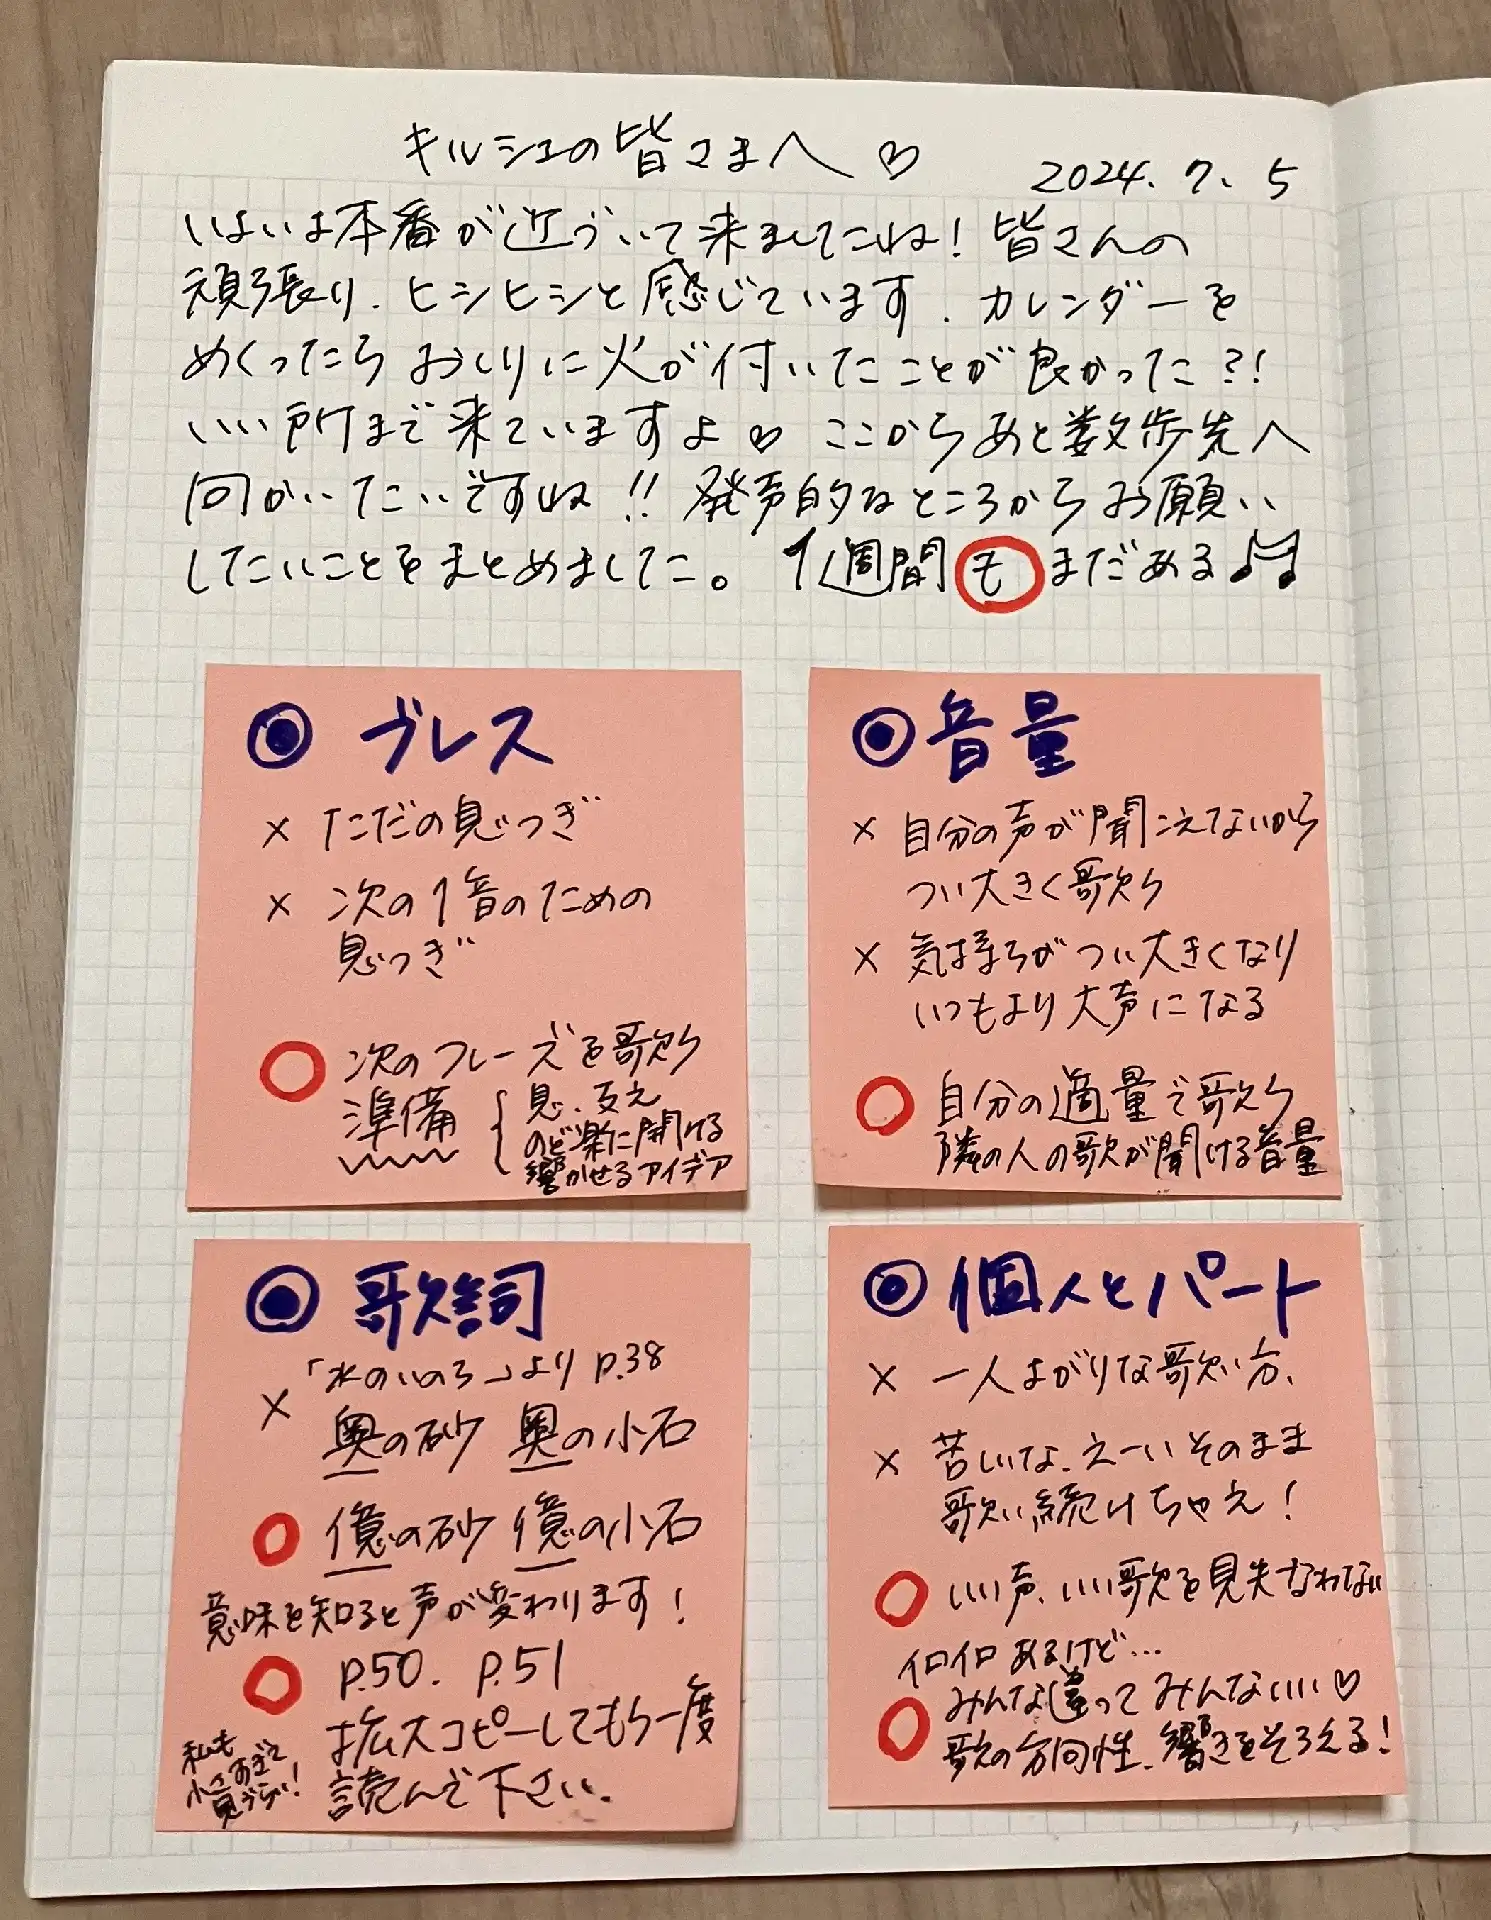 キルシェの皆さまへ♡
2024.7.5
いよいよ本番が近づいて来ましたね！皆さんの
頑張り、ヒシヒシと感じています。カレンダーを
めくったらおしりに火が付いたことが良かった?!
いい所まで来ていますよ♡ ここからあと数歩先へ
向かいたいですね!! 発声的なところからお願い
したいことをまとめました。1週間もまだある♫
◉ ブレス
× ただの息つぎ
× 次の1音のための
息つぎ
○ 次のフレーズを歌う
準備 { 息、支え
のど楽に開ける
響かせるアイデア
◉ 音量
× 自分の声が聞こえないから
つい大きく歌う
× 気持ちがつい大きくなり
いつもより大声になる
○ 自分の適量で歌う
隣の人の歌が聞ける音量
◉ 歌詞
「水のいのち」より P.38
× 奥の砂 奥の小石
○ 億の砂 億の小石
意味を知ると声が変わります！
○ P.50. P.51
拡大コピーしてもう一度
読んで下さい。
私も
小さすぎて
見づらい！
◉ 個人とパート
× 一人よがりな歌い方、
× 苦しいな、えーいそのまま
歌い続けちゃえ！
○ いい声、いい歌を見失なわない
イロイロあるけど…
○ みんな違ってみんないい♡
歌の方向性、響きをそろえる！